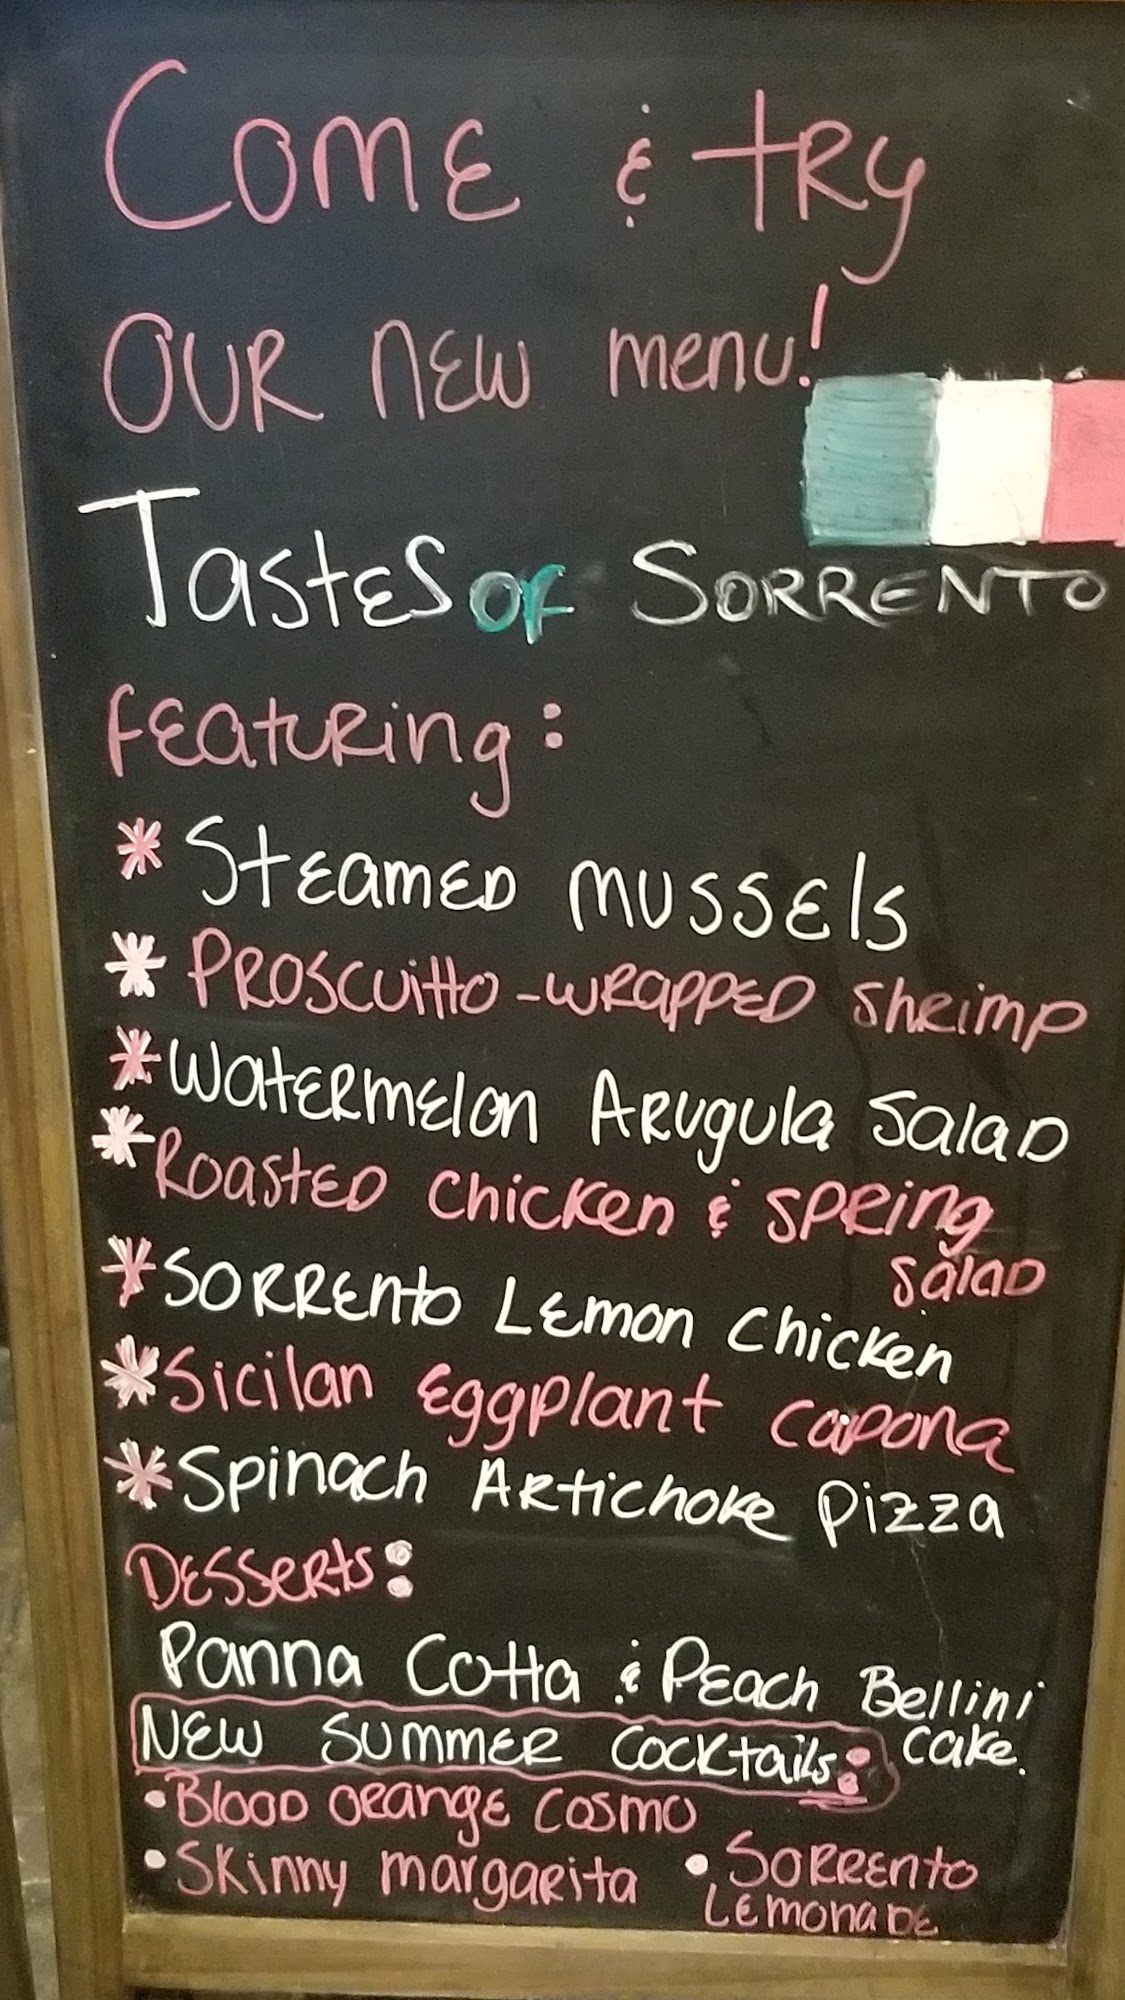 Come & try
OUR new menu!
Tastes of Sorrento
Featuring:
* Steamed mussels
* Proscuitto-wrapped shrimp
* Watermelon Arugula Salad
* Roasted chicken & spring
salad
* Sorrento Lemon chicken
* Sicilan Eggplant capona
* Spinach Artichoke pizza
Desserts:
Panna Cotta & Peach Bellini
cake.
New summer cocktails:
• Blood orange cosmo
• Skinny margarita
• Sorrento
Lemonade